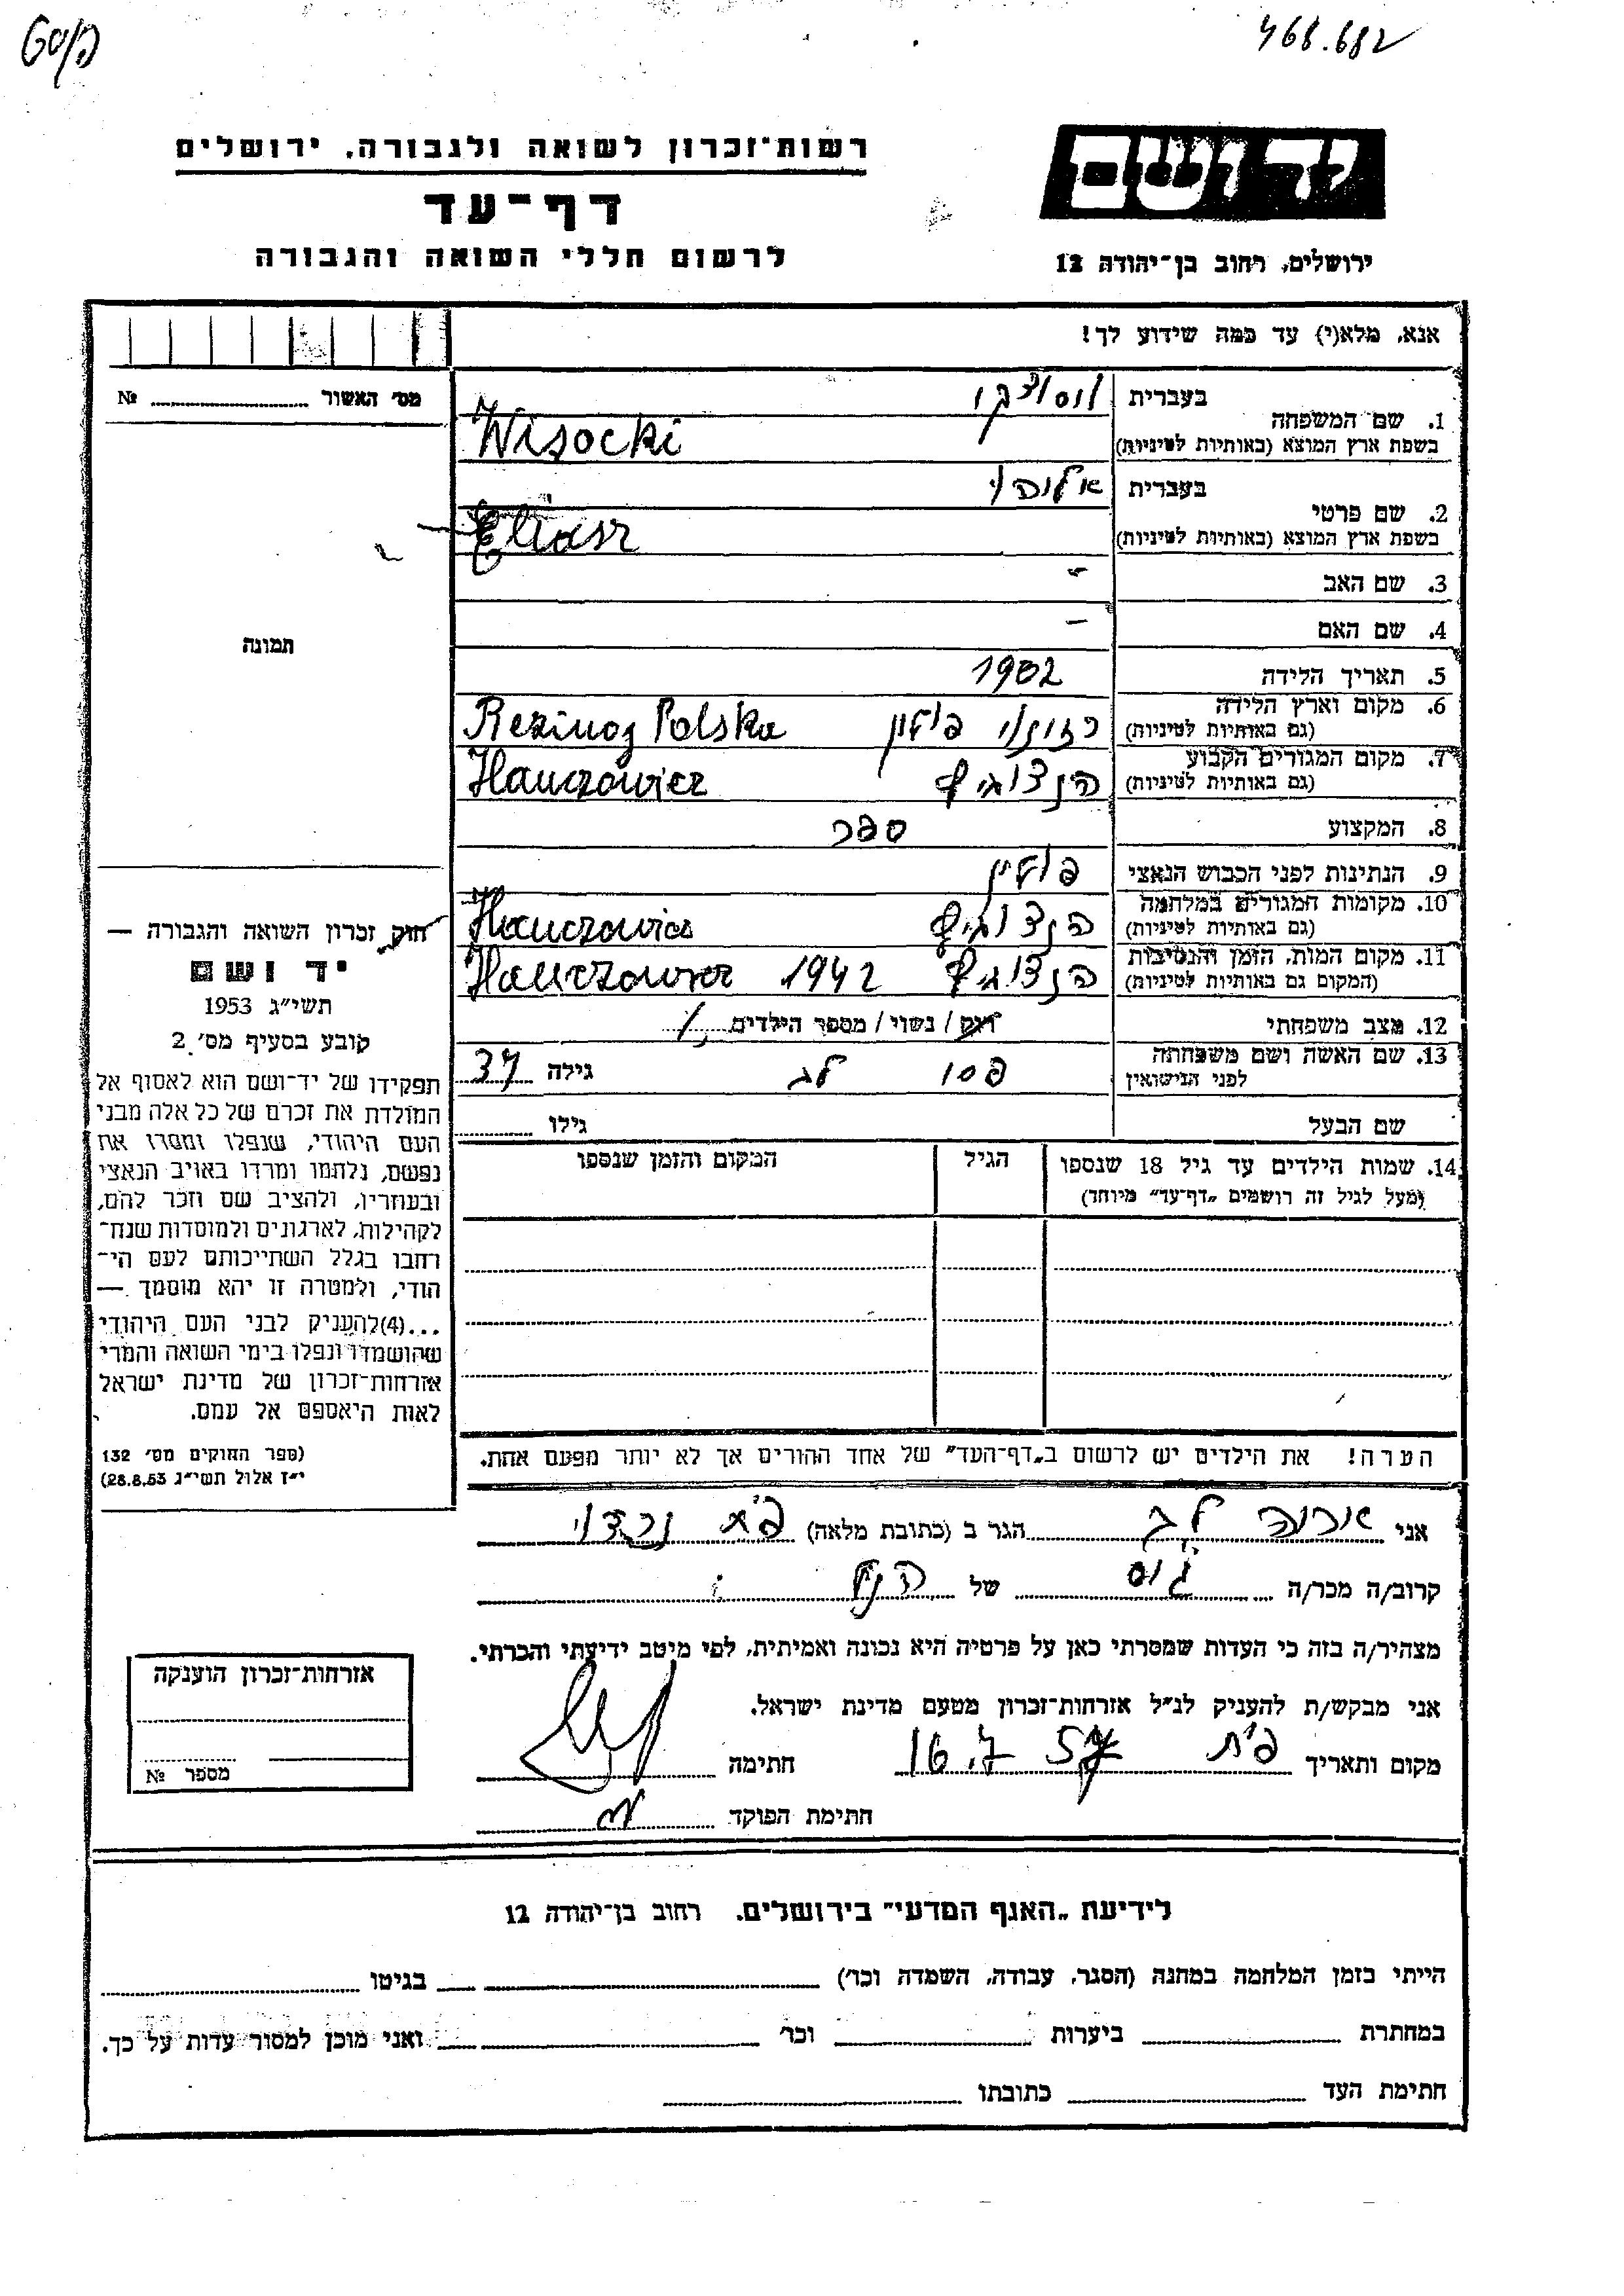 468.682
רשות־זכרון לשואה ולגבורה, ירושלים
דף־עד
לרשום חללי השואה והגבורה
יד ושם
ירושלים, רחוב בן־יהודה 12
אנא, מלא(י) עד כמה שידוע לך!
מס' האשור № 
1. שם המשפחה
בעברית
בשפת ארץ המוצא (באותיות לטיניות) Wisocki
2. שם פרטי
בעברית אליהו
בשפת ארץ המוצא (באותיות לטיניות) Eliasz
3. שם האב –
4. שם האם –
5. תאריך הלידה 1902
6. מקום וארץ הלידה
(גם באותיות לטיניות) פולין Polska
7. מקום המגורים הקבוע
(גם באותיות לטיניות) הנצוביץ Hanczowicz
8. המקצוע ספר
9. הנתינות לפני הכבוש הנאצי פולין
10. מקומות המגורים במלחמה
(גם באותיות לטיניות) הנצוביץ Hanczowicz
11. מקום המות, הזמן והנסיבות
(המקום גם באותיות לטיניות) הנצוביץ 1942
12. מצב משפחתי רווק / נשוי / מספר הילדים 1
13. שם האשה ושם משפחתה
לפני הנישואין לב גילה 37
שם הבעל גילו
14. שמות הילדים עד גיל 18 שנספו הגיל המקום והזמן שנספו
(מעל לגיל זה רושמים „דף־עד" מיוחד)
הערה! את הילדים יש לרשום ב„דף־העד" של אחד ההורים אך לא יותר מפעם אחת.
תמונה
חוק זכרון השואה והגבורה —
יד ושם
תשי"ג 1953
קובע בסעיף מס' 2
תפקידו של יד־ושם הוא לאסוף אל
המולדת את זכרם של כל אלה מבני
העם היהודי, שנפלו ומסרו את
נפשם, נלחמו ומרדו באויב הנאצי
ובעוזריו, ולהציב שם וזכר להם,
לקהילות, לארגונים ולמוסדות שנח־
רבו בגלל השתייכותם לעם הי־
הודי, ולמטרה זו יהא מוסמך —
...(4) להעניק לבני העם היהודי
שהושמדו ונפלו בימי השואה והמרי
אזרחות־זכרון של מדינת ישראל
לאות היאספם אל עמם.
(ספר החוקים מס' 132
י"ז אלול תשי"ג 28.8.53)
אני לב הגר ב (כתובת מלאה) פ"ת
קרוב/ה מכר/ה גיס של הנ"ל
מצהיר/ה בזה כי העדות שמסרתי כאן על פרטיה היא נכונה ואמיתית, לפי מיטב ידיעתי והכרתי.
אני מבקש/ת להעניק לנ"ל אזרחות־זכרון מטעם מדינת ישראל.
מקום ותאריך פ"ת 16.7.57 חתימה
חתימת הפוקד
אזרחות־זכרון הוענקה
מספר №
לידיעת „האגף המדעי" בירושלים, רחוב בן־יהודה 12
הייתי בזמן המלחמה במחנה (הסגר, עבודה, השמדה וכו') בגיטו
במחתרת ביערות וכו' ואני מוכן למסור עדות על כך.
חתימת העד כתובתו